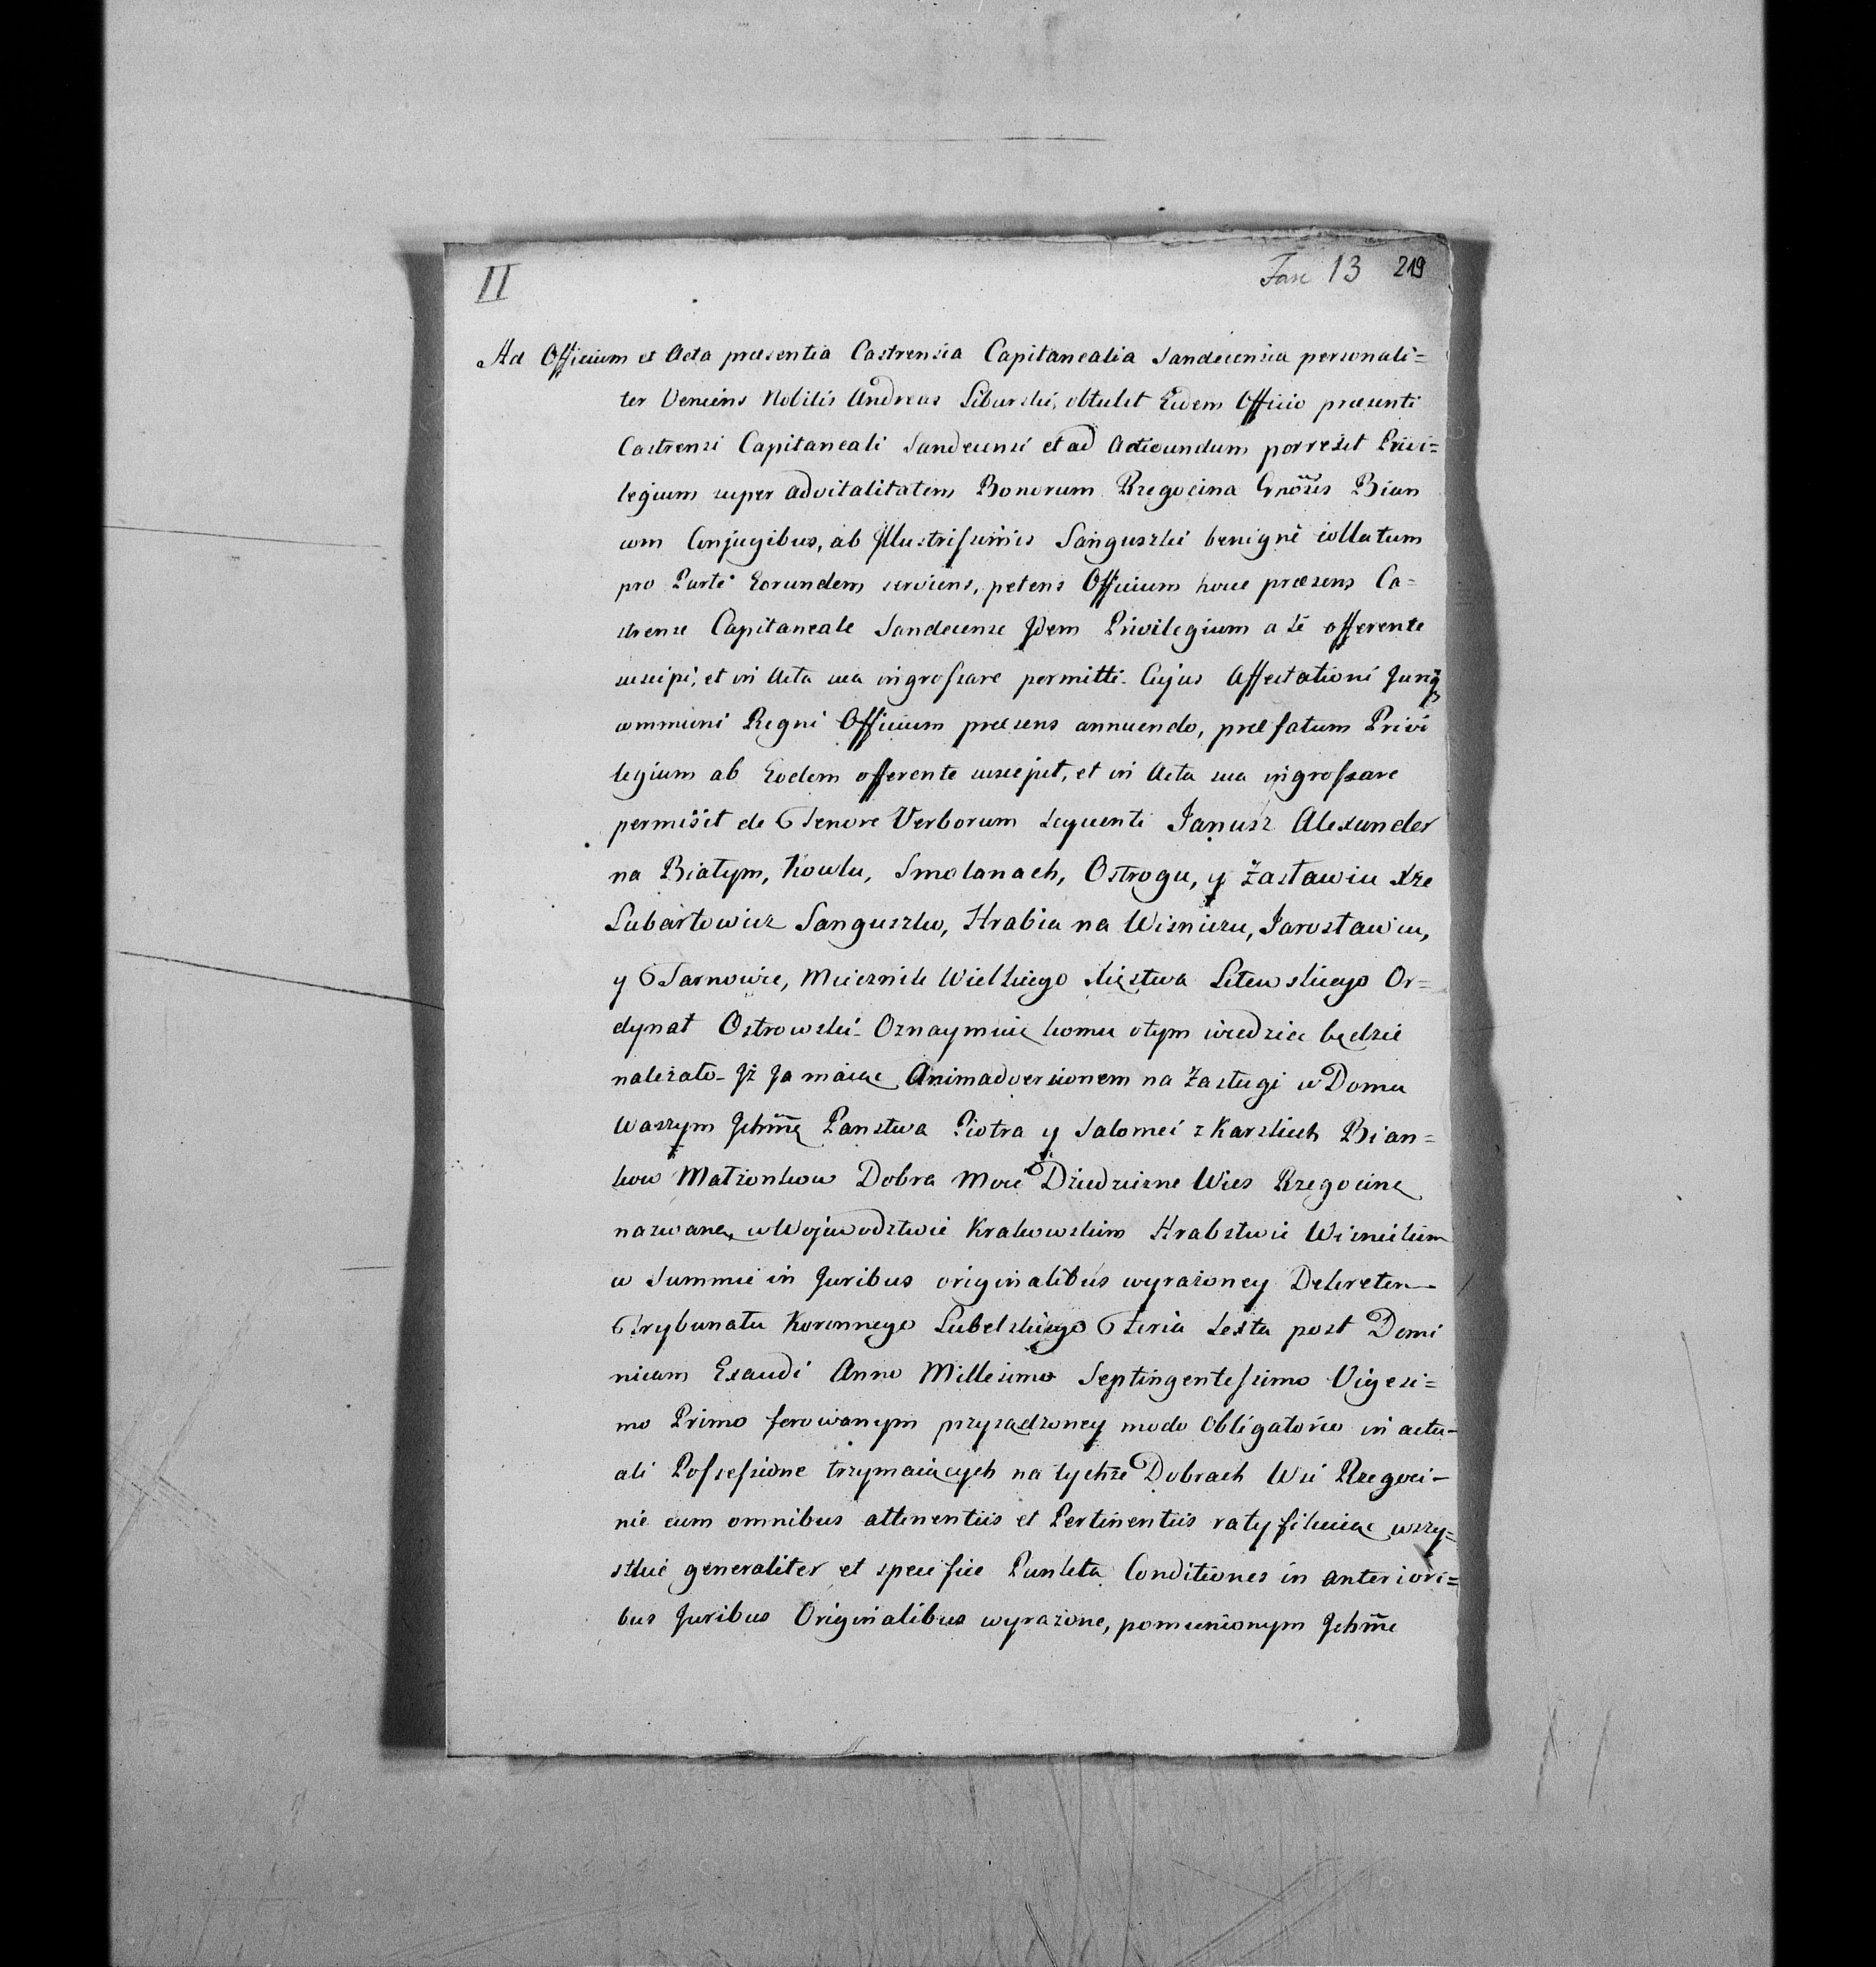 II
Fasc 13 219
Ad Officium et Acta præsentia Castrensia Capitanealia Sandecensia personali=
ter Veniens Nobilis Andreas Liburski, obtulit Eidem Officio præsenti
Castrensi Capitaneali Sandecensi et ad Acticandum porrexit Privi=
legium super advitalitatem Bonorum Rzegocina Gnõsis Bian
com Conjugibus, ab Illustrissimis Sanguszki benigne collatum
pro Parte Eorundem serviens, petens Officium hocce præsens Ca=
strense Capitaneale Sandecense Idem Privilegium a se offerente
suscipi, et in Acta sua ingrossare permitti. Cujus Affectationi Juriq
communi Regni Officium præsens annuendo, præfatum Privi
legium ab Eodem offerente suscepit, et in Acta sua ingrossare
permisit de Tenore Verborum sequenti Janusz Alexander
na Białym, Kowlu, Smolanach, Ostrogu, y Zasławiu Xże
Lubartowicz Sanguszko, Hrabia na Wiśniczu, Jarosławiu,
y Tarnowie, Miecznik Wielkiego Xięstwa Litewskiego Or=
dynat Ostrowski. Oznaymuię komu otym wiedzieć będzie
należało. Iż Ja maiąc Animadversionem na Zasługi w Domu
Waszym Ichm̃ę Panstwa Piotra y Salomei z Karskich Bian=
kow Małzonkow Dobra Moie Dziedziczne Wies Rzegocinę
nazwaną, w Wojewodztwie Krakowskim Hrabstwie Wisnickim
w Summie in Juribus originalibus wyrażoney Dekretem
Trybunału Koronnego Lubelskiego Feria Sexta post Domi
nicam Exaudi Anno Millesimo Septingentessimo Vigesi=
mo Primo ferowanym przysądzoney modo obligatorio in actu=
ali Possessione trzymaiących na tychże Dobrach Wsi Rzegoci=
nie cum omnibus attinentiis et Pertinentiis ratyfikuiąc wszy=
stkie generaliter et specifice Punkta Conditiones in anteriori=
bus Juribus Originalibus wyrażone, pomienionym Ichm̃ę